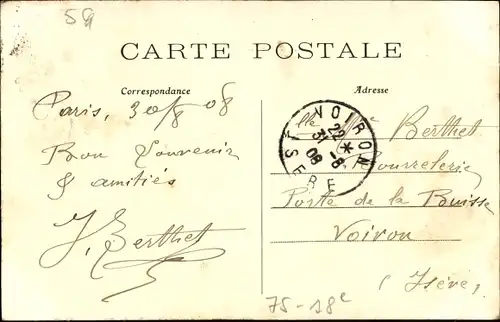 59
CARTE POSTALE
Correspondance
Adresse
Paris, 30/8 08
Bon Souvenir
& amitiés
J. Berthet
VOIRON
22 *
31 -8
08
ISERE
Mlle Berthet
Porte de la Buisse
Voiron
(Isère)
75-18e